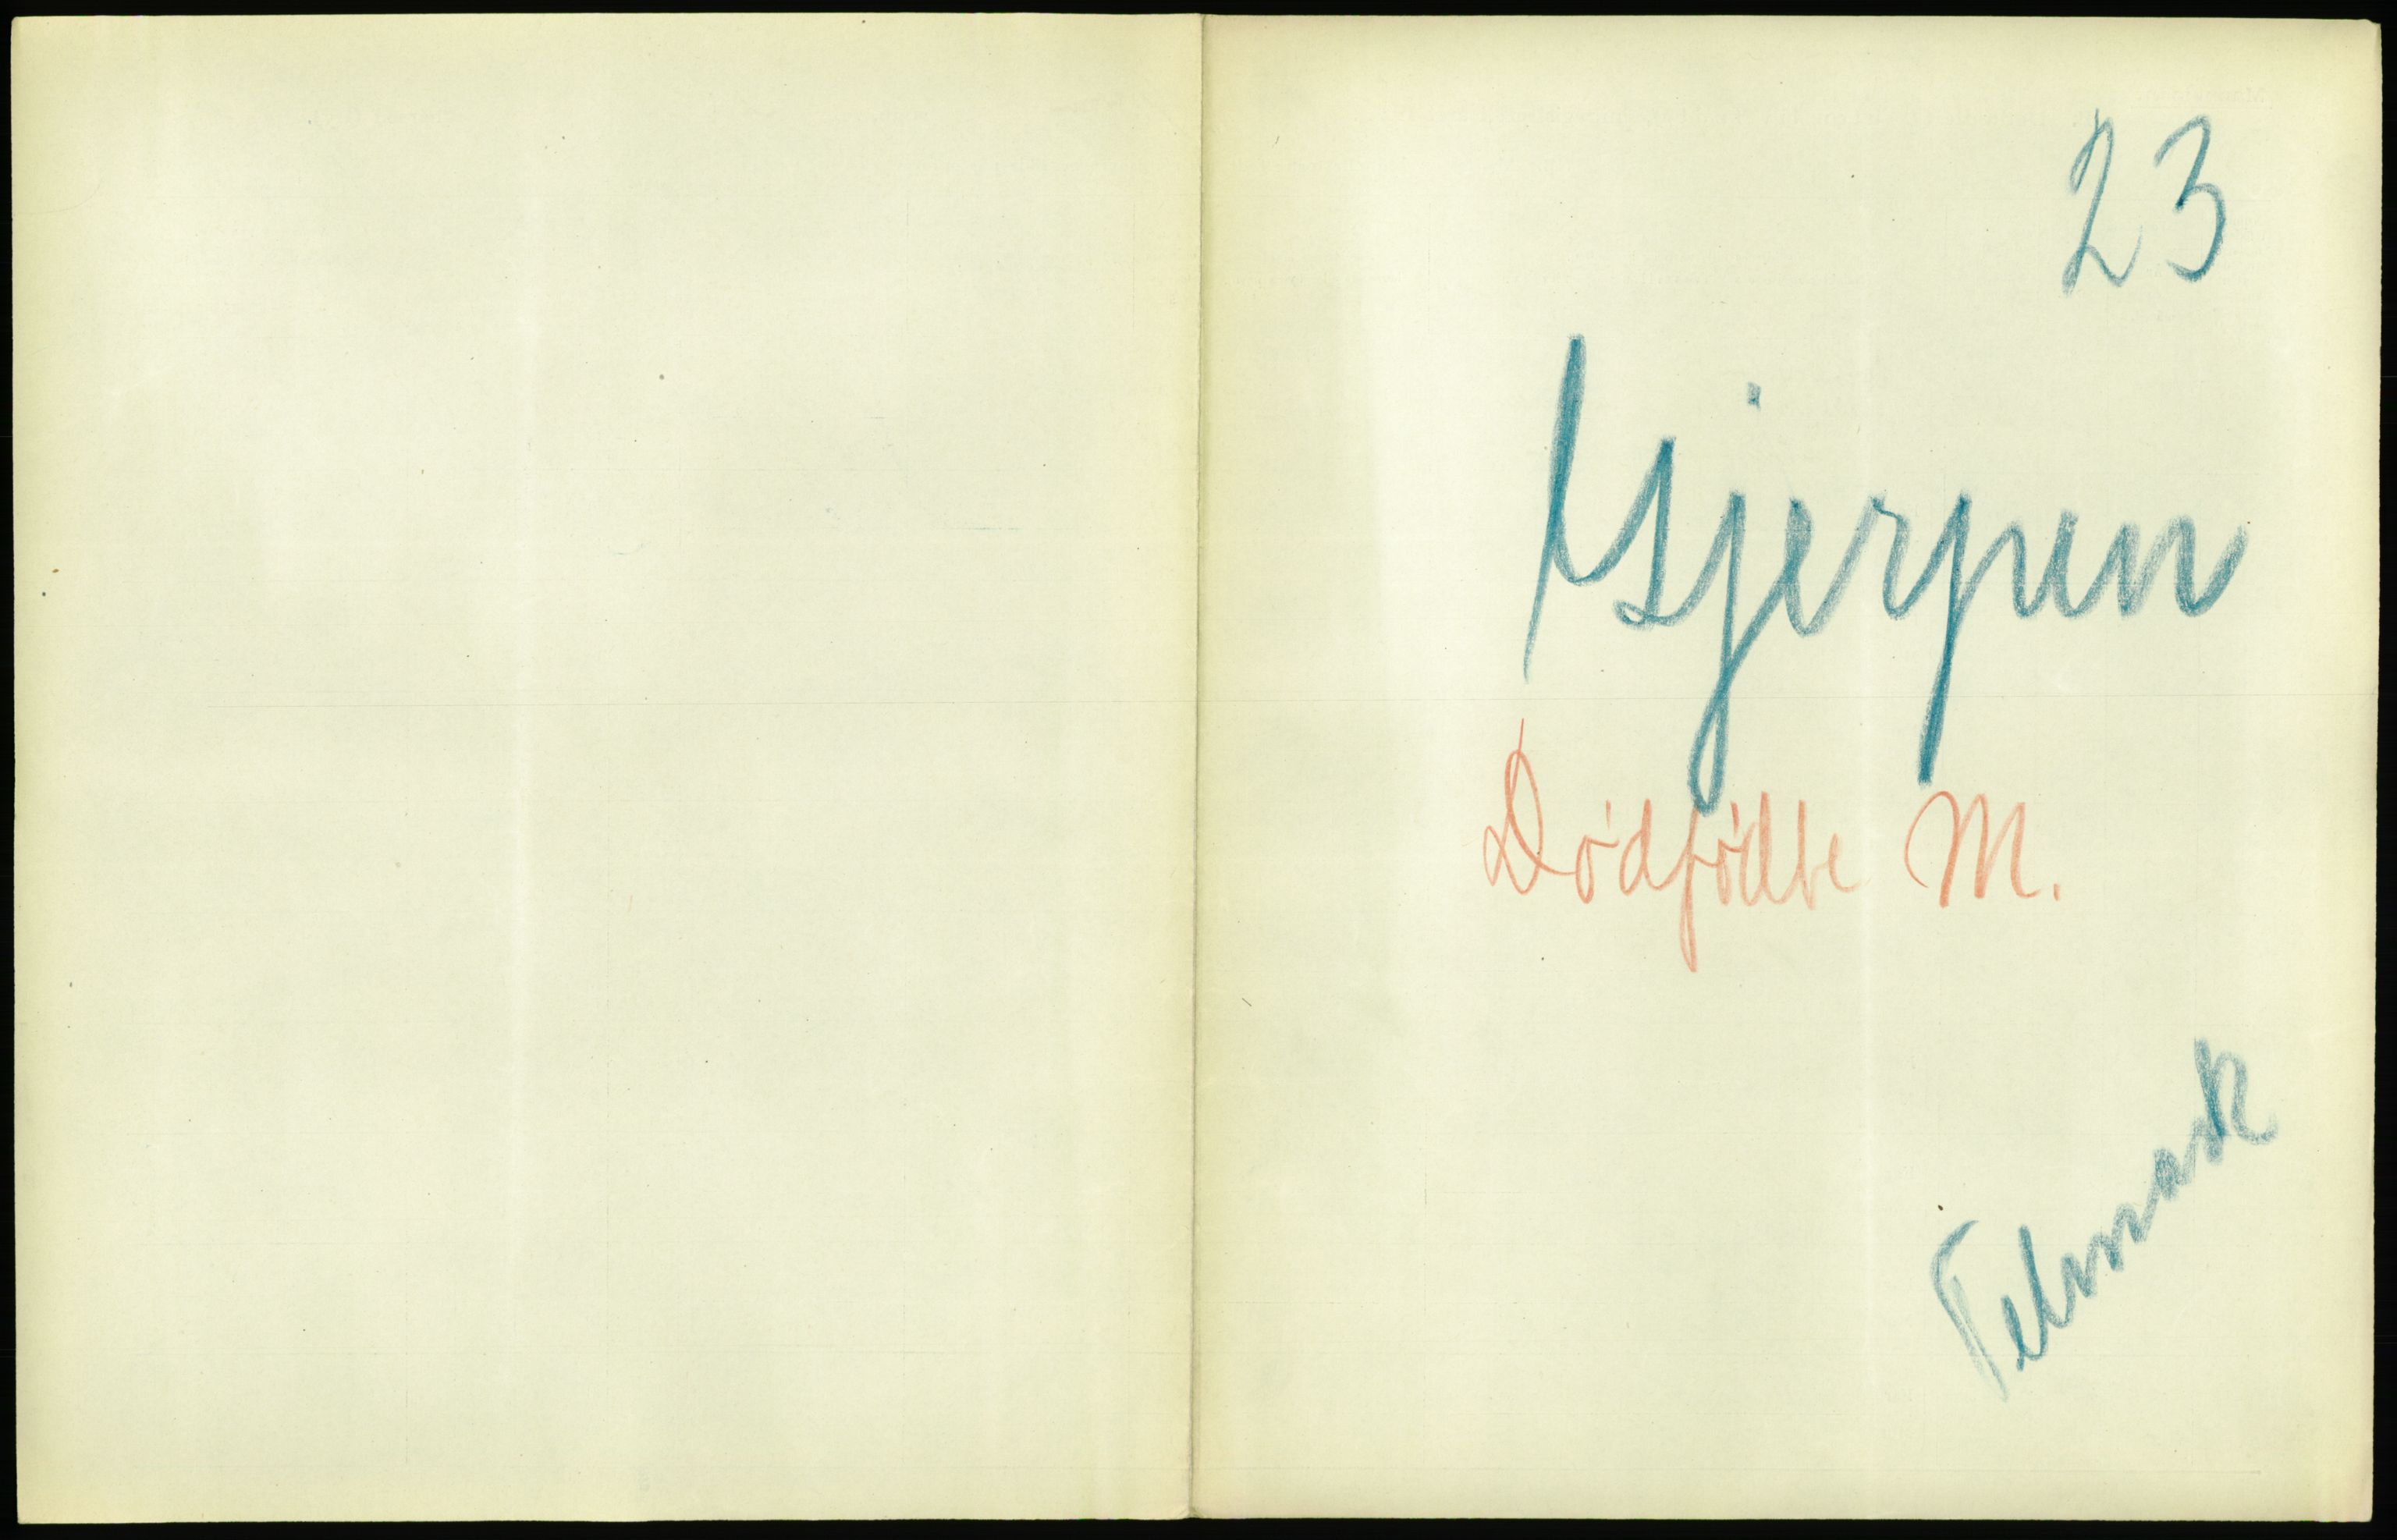 23
Gjerpen
Dødfødte M.
Telemark